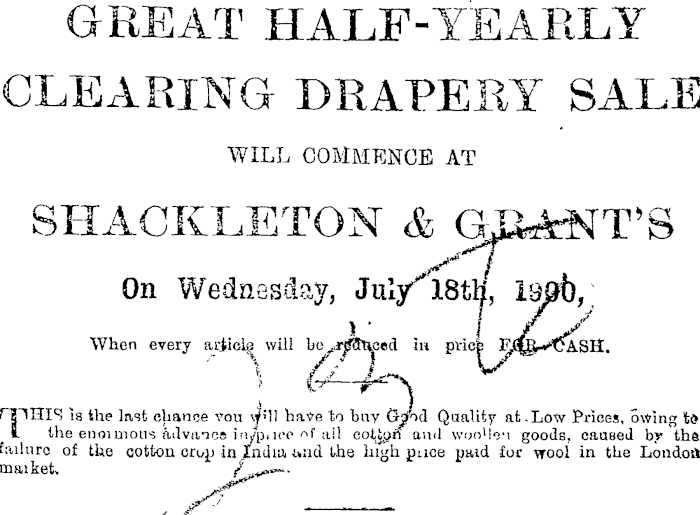 GREAT HALF-YEARLY
CLEARING DRAPERY SALE
WILL COMMENCE AT
SHACKLETON & GRANT'S
On Wednesday, July 18th, 1900,
When every article will be reduced in price FOR CASH.
THIS is the last chance you will have to buy Good Quality at Low Prices, owing to
the enormous advance in price of all cotton and woollen goods, caused by the
failure of the cotton crop in India and the high price paid for wool in the London
market.